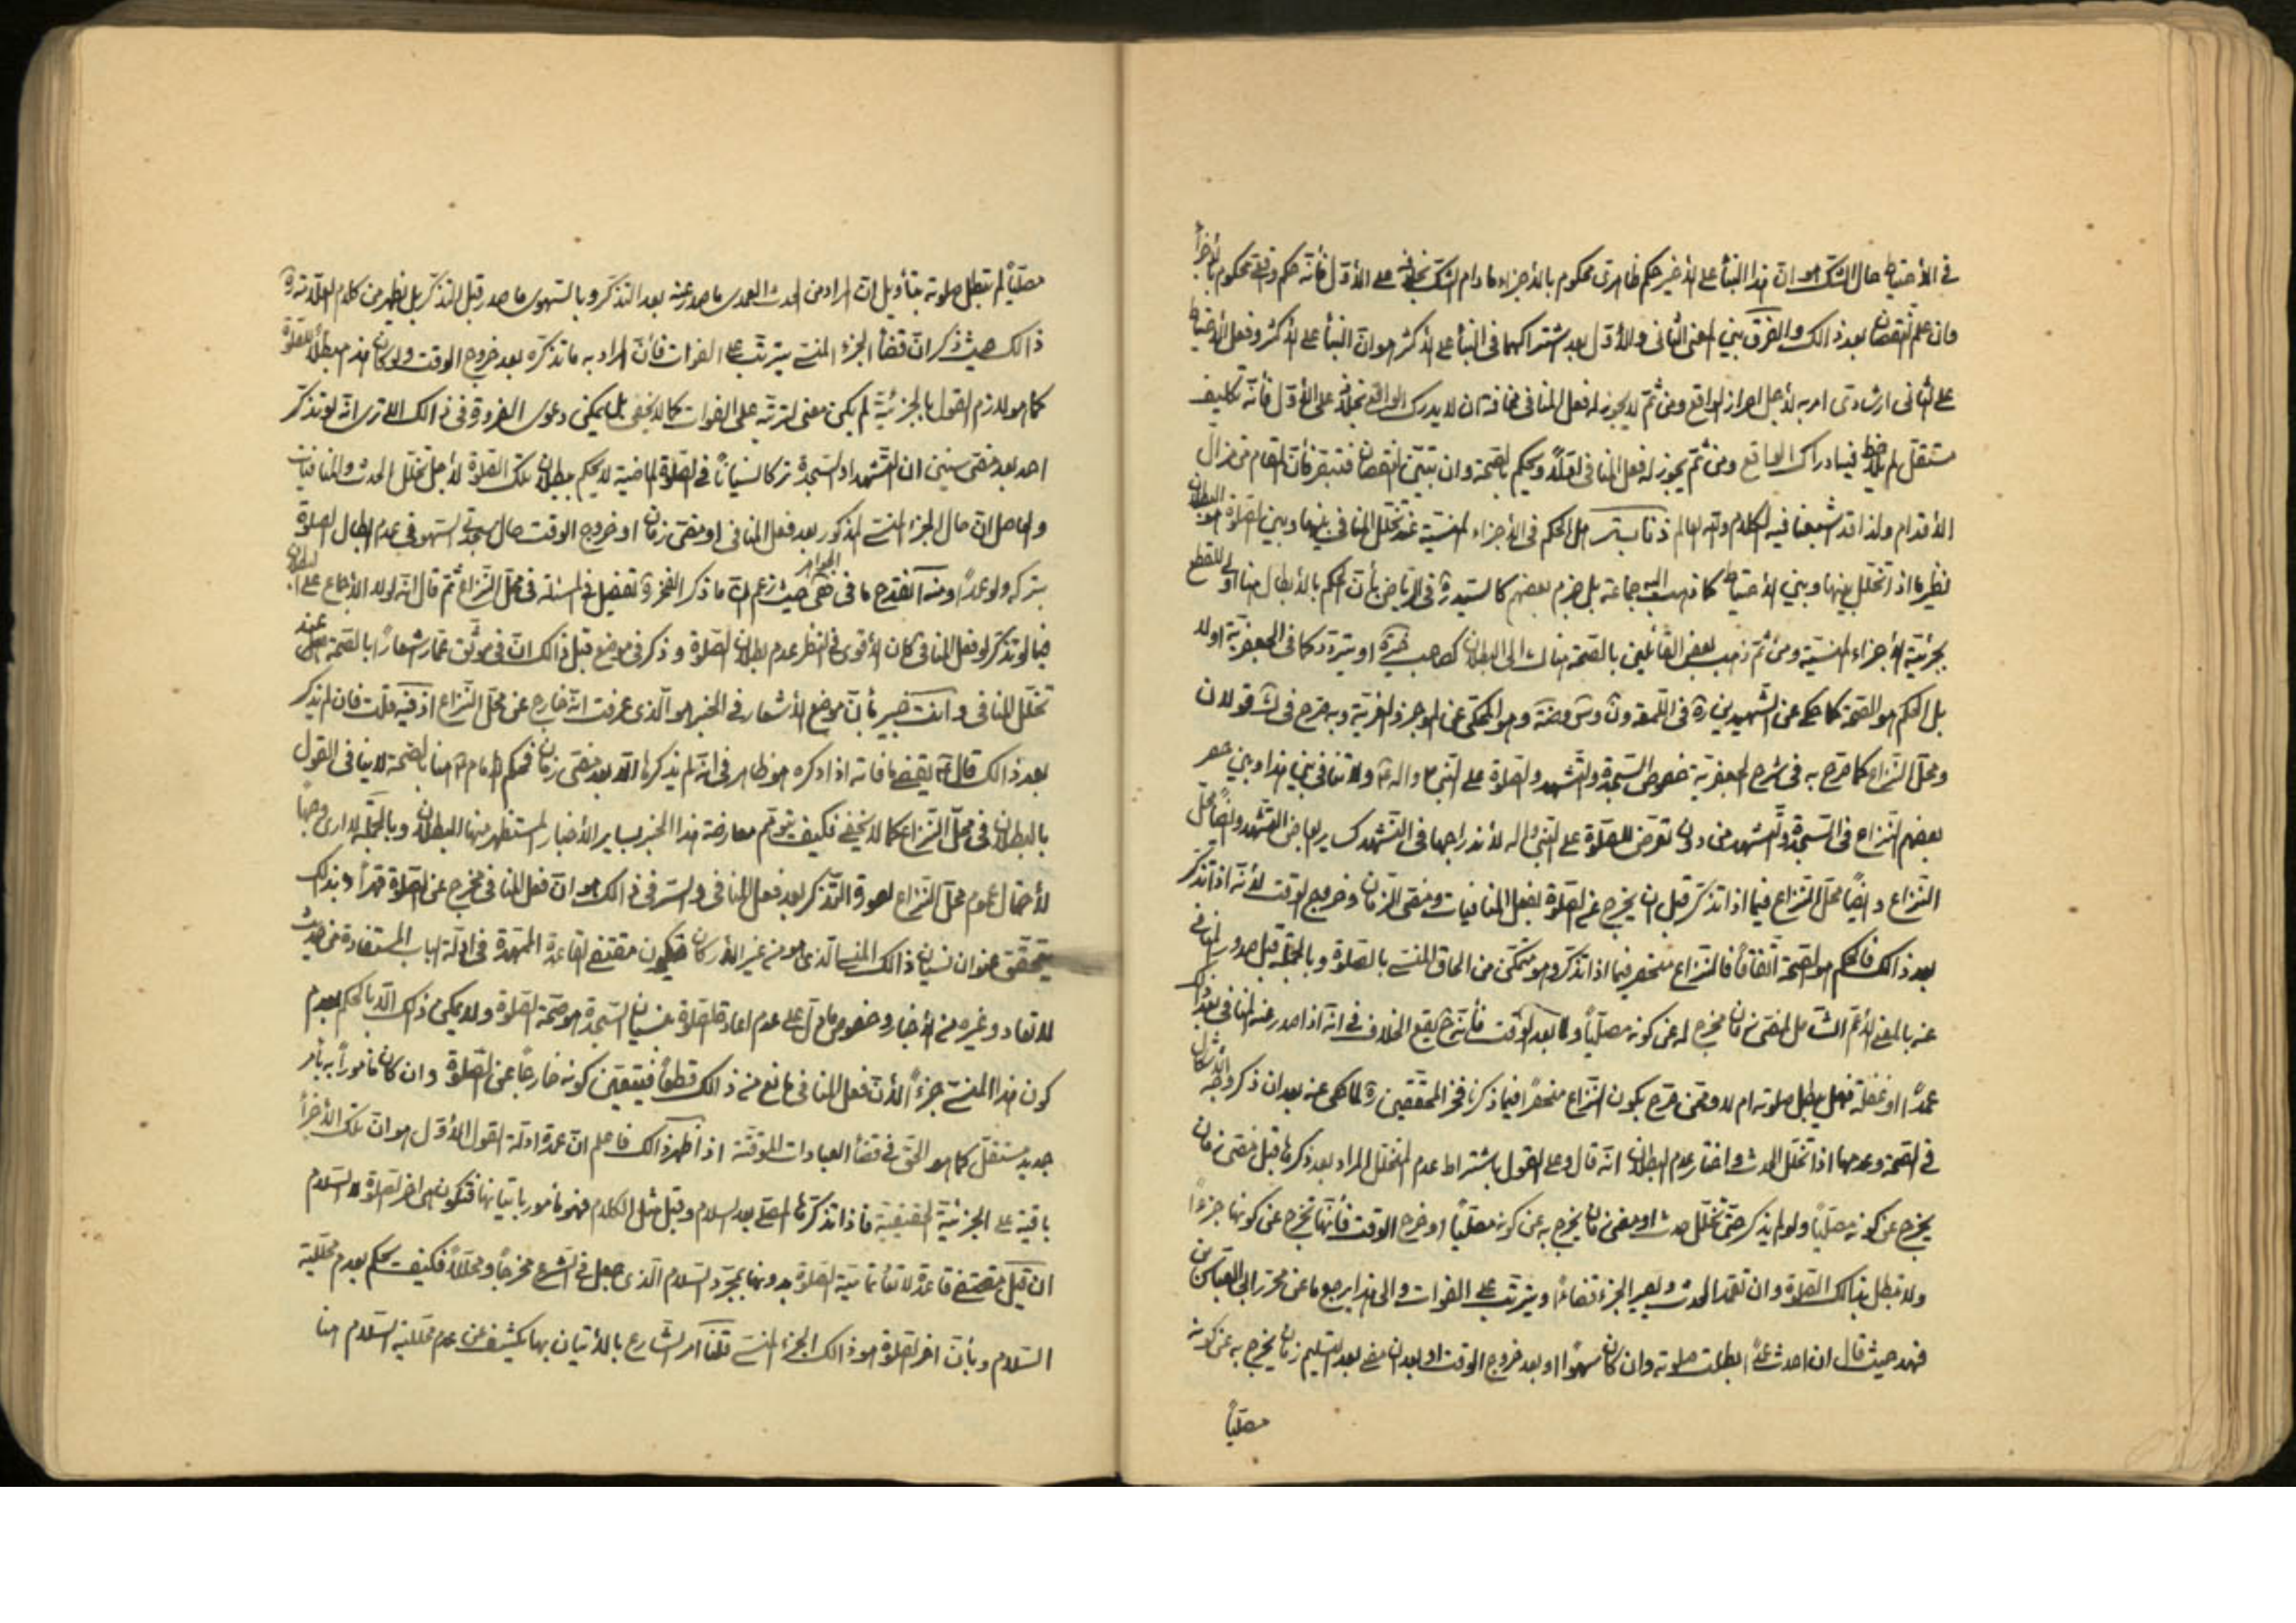 في الأحتياط حال الشك هو ان هذا البنأ على الأخير حكم ظاهرى محكوم بالأجزاء ما دام الشك بخلافه على الأول فأنه حكم واقعى محكوم بالأجزأ
وان علم النقصان بعد ذالك والفرق بين المعنى الثانى والأول بعد اشتراكهما فى البنأ على الأكثر هو ان البنأ على الأكثر وفعل الأحتياط
على الثانى ارشادى امر به لأجل احراز الواقع ومن ثم لا يجوز له فعل المنافى مخافة ان لا يدرك الواقع بخلافه على الأول فأنه تكليف
مستقل لم يلاحظ فيه ادراك الواقع ومن ثم يجوز له فعل المنافى اولا ويحكم بالصحة وان تبين النقصان فتبصر فأن المقام من مزال
الأقدام ولذا قد اشبعنا فيه الكلام والله العالم ذنابة هل الحكم فى الأجزاء المنسية عند تخلل المنافى بينها وبين الصلوة هو البطلان
نظير ما اذا تخلل بينها وبين الأحتياط كما ذهب اليه جماعة بل جزم بعضهم كالسيد ره فى الرياض بأن الحكم بالأبطال هنا اولى للقطع
بجزئية الأجزاء المنسية ومن ثم ذهب بعض القائلين بالصحة هناك الى البطلان كصاحب خيرة او يتردد كما فى الجعفرية اولا
بل الحكم هو الصحة كما حكى عن الشهيدين ره فى اللمعة ون وس وضة وهو المحكى عن الموجز والغرية وبه صرح فى ك قولان
ومحل النزاع كما صرح به فى شرح الجعفرية خصوص السجدة والتشهد والصلوة على النبى ص واله ع ولا تنافى بين هذا وبين حصر
بعضهم النزاع فى السجدة والتشهد من دون تعرض للصلوة على النبى واله لأندراجها فى التشهد كساير ابعاض التشهد وايضا محل
النزاع وايضا محل النزاع فيما اذا تذكر قبل ان يخرج عن الصلوة بفعل المنافيات ومضى الزمان وخروج الوقت لأنه اذا تذكر
بعد ذالك فالحكم هو الصحة اتفاقا فالنزاع منحصر فيما اذا تذكر وهو متمكن من الحاق المنسى بالصلوة وبالجملة قبل صدور المنافى
عنه بالمعنى الأعم الشامل لمضى زمان مخرج له عن كونه مصليا ولما بعد الوقت فأنه ح يقع الخلاف فى انه اذا صدر عنه المنافى بعد ذلك
عمدا او غفلة فهل يبطل صلوته ام لا وممن صرح بكون النزاع منحصرا فيما ذكرنا فخر المحققين ره لما حكى عنه بعد ان ذكر وجه الأشكال
فى الصحة وعدمها اذا تخلل الحدث واختار عدم البطلان انه قال وعلى القول باشتراط عدم التخلل المراد بعد ذكرها قبل مضى زمان
يخرج عن كونه مصليا ولو لم يذكر حتى تخلل حدث او مضى زمان يخرج به عن كونه مصليا او خرج الوقت فأنها تخرج عن كونها جزءا
ولا تبطل بذالك الصلوة وان تعمد الحدث ويصير الجزء قضاءا ويترتب على الفوات والى هذا يرجع ما عن محرر ابى العباس بن
فهد حيث قال ان احدث عمدا بطلت صلوته وان كان سهوا او بعد خروج الوقت او بعد ان مضى بعد التسليم زمان يخرج به عن كونه
مصليا
مصليا لم تبطل صلوته بتأويل ان المراد من الحدث العمدى ما صدر عنه بعد التذكر وبالسهوى ما صدر قبل التذكر بل يظهر من كلام العلامة ره
ذالك حيث ذكر ان قضأ الجزء المنسى يترتب على الفوات فأن المراد به ما تذكره بعد خروج الوقت ولو كان هذا مبطلا للصلوة
كما هو لازم القول بالجزئية لم يكن معنى لترتبه على الفوات كما لا يخفى بل يمكن دعوى الضرورة فى ذالك الا ترى انه لو تذكر
احد بعد مضى سنين ان التشهد او السجدة تركا نسيانا فى الصلوة الماضية لا يحكم ببطلان تلك الصلوة لأجل تخلل الحدث والمنافيات
والحاصل ان حال الجزء المنسى المذكور بعد فعل المنافى او مضى زمان او خروج الوقت حال سجدتى السهو فى عدم ابطال الصلوة
بتركه ولو عمدا ومنه انقدح ما فى الجواهر حيث زعم ان ما ذكر الفخر ره تفصيل فى المسئلة فى محل النزاع ثم قال انه لولا الأجماع على البطلان
فيما لو تذكر لو فعل المنافى كان الأقوى فى النظر عدم بطلان الصلوة وذكر فى موضع قبل ذالك ان فى موثق عمار اشعارا بالصحة عند
تخلل المنافى وانت خبير بأن موضع الأشعار فى الخبر هو الذى عرفت انه خارج عن محل النزاع اذ فيه قلت فان لم يذكر
بعد ذالك قال ع يقضى ما فاته اذا ذكره هو ظاهر فى انه لم يذكرها الا بعد مضى زمان فحكم الامام ع هنا بالصحة لا ينافى القول
بالبطلان فى محل النزاع كما لا يخفى فكيف يتوهم معارضة هذا الخبر بساير الأخبار المستظهر منها البطلان وبالجملة لا ارى وجها
لأحتمال عموم محل النزاع لصورة التذكر بعد فعل المنافى والسر فى ذالك هو ان فعل المنافى مخرج عن الصلوة قهرا وبذلك
يتحقق عنوان نسيان ذالك المنسى الذى هو من غير الأركان فيكون مقتضى القاعدة الممهدة فى ادلة الباب المستفادة من حديث
لا تعاد وغيره من الأخبار وخصوص ما دل على عدم اعادة الصلوة بنسيان السجدة هو صحة الصلوة ولا يمكن ذالك الا بالحكم بعدم
كون هذا المنسى جزءا لأن فعل المنافى مانع من ذالك قطعا فيتعين كونه خارجا عن الصلوة وان كان مأمورا به بأمر
جديد مستقل كما هو الحق فى قضأ العبادات الموقتة اذا ظهر ذالك فاعلم ان عمدة ادلة القول الأول هو ان تلك الأجزأ
باقية على الجزئية الحقيقية فاذا تذكرها المصلى بعد السلام وقبل مثل الكلام فهو مأمور باتيانها فتكون هى اخر الصلوة لا السلام
ان قيل مقتضى قاعدة لا تعاد تمامية الصلوة بدونها بمجرد السلام الذى جعل فى الشرع مخرجا ومحللا فكيف يحكم بعدم محللية
السلام وبأن اخر الصلوة هو ذالك الجزء المنسى قلنا امر الشارع بالأتيان بها يكشف عن عدم محللية السلام هنا